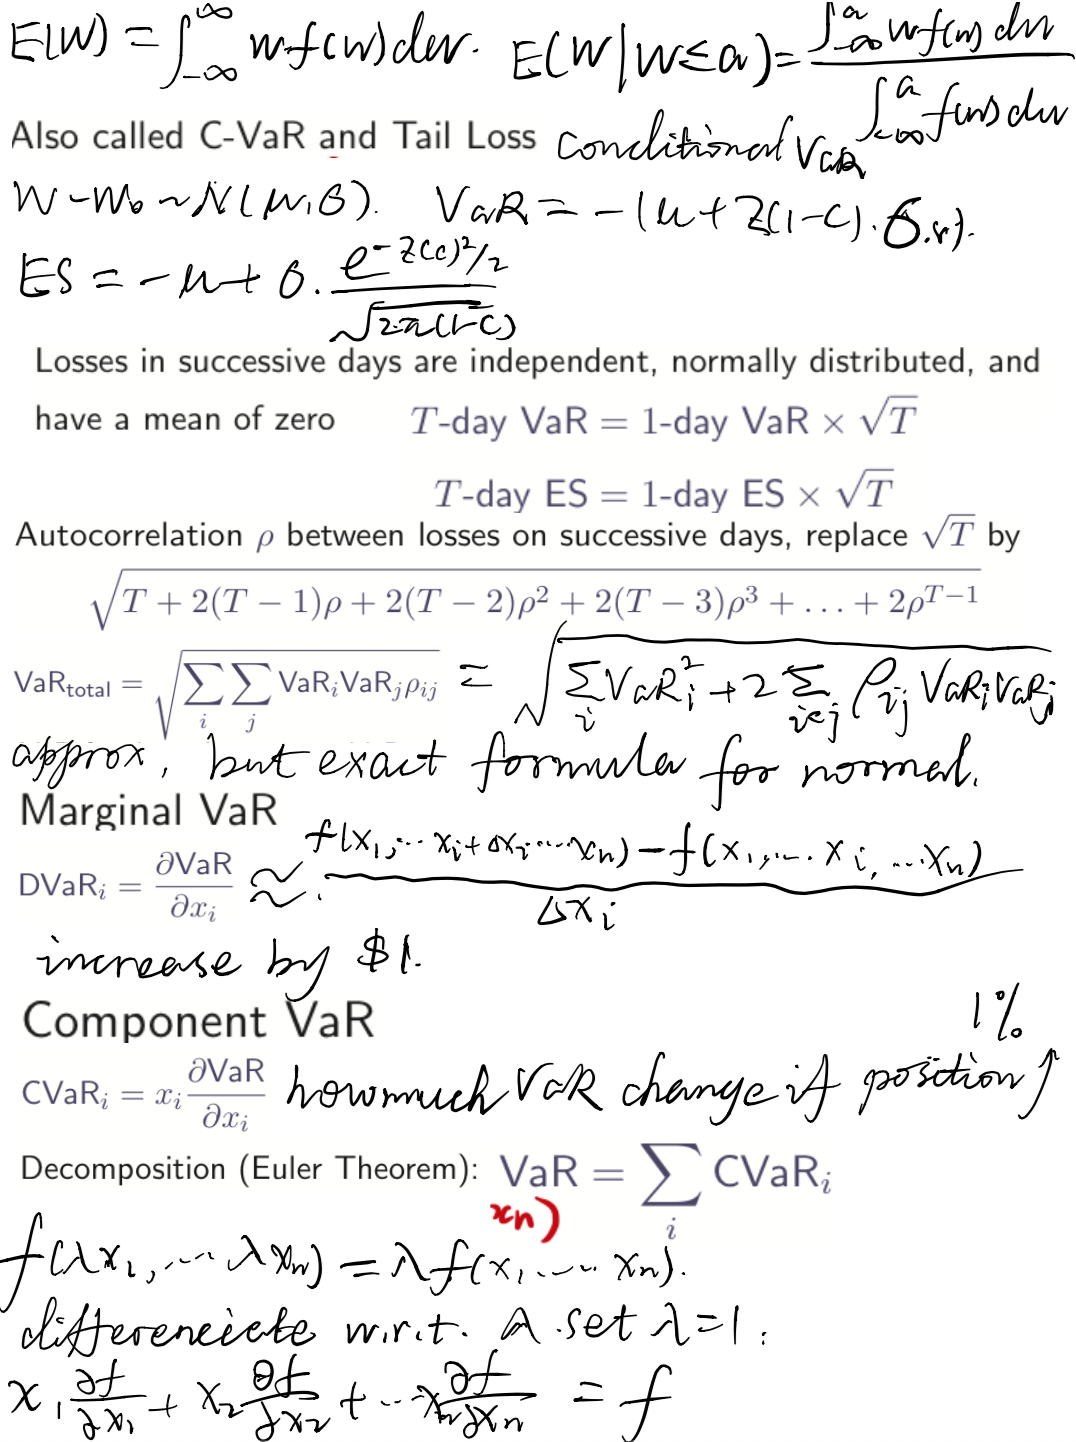 E(W) = ∫_{-∞}^{∞} w f(w) dw. E(W|W≤a) = ∫_{-∞}^{a} w f(w) dw / ∫_{-∞}^{a} f(w) dw
Also called C-VaR and Tail Loss conditional VaR
W - W₀ ~ N(μ, σ). VaR = -(μ + Z(1-c)·σ.r).
ES = -μ + σ · e^{-Z(c)²/2} / √2π(1-c)
Losses in successive days are independent, normally distributed, and
have a mean of zero T-day VaR = 1-day VaR × √T
T-day ES = 1-day ES × √T
Autocorrelation ρ between losses on successive days, replace √T by
√(T + 2(T − 1)ρ + 2(T − 2)ρ² + 2(T − 3)ρ³ + ... + 2ρ^{T−1})
VaR_total = √(∑_i ∑_j VaR_i VaR_j ρ_ij) = √(∑_i VaR_i² + 2 ∑_{i<j} ρ_ij VaR_i VaR_j)
approx, but exact formula for normal.
Marginal VaR
DVaR_i = ∂VaR/∂x_i ≈ f(x₁, ... x_i + Δx_i ... x_n) - f(x₁, ... x_i, ... x_n) / Δx_i
increase by $1.
Component VaR
1%
CVaR_i = x_i ∂VaR/∂x_i how much VaR change if position ↑
Decomposition (Euler Theorem): VaR = ∑_i CVaR_i
xn)
f(λx₁, ... λx_n) = λf(x₁ ... x_n).
differenciate w.r.t. λ . set λ=1 :
x₁ ∂f/∂x₁ + x₂ ∂f/∂x₂ + ... x_n ∂f/∂x_n = f